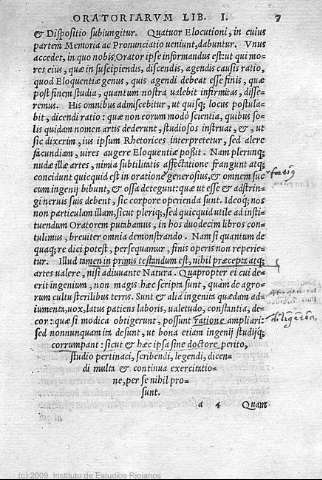 ORATORIARVM LIB. I. 7
& Dispositio subiungitur. Quatuor Elocutioni, in cuius
partem Memoria ac Pronunciatio ueniunt, dabuntur. Vnus
accedet, in quo nobis Orator ipse informandus est: ut qui mo-
res eius, quæ in suscipiendis, discendis, agendis causis ratio,
quod Eloquentiæ genus, quis agendi debeat esse finis, quæ
post finem studia, quantum nostra ualebit infirmitas, disse-
remus. His omnibus admiscebitur, ut quisq; locus postula-
bit, dicendi ratio: quæ non eorum modo scientia, quibus so-
lis quidam nomen artis dederunt, studiosos instruat, &, ut
sic dixerim, ius ipsum Rhetorices interpretetur, sed alere
facundiam, uires augere Eloquentiæ possit. Nam plerunq;
nudæ illæ artes, nimia subtilitatis affectatione frangunt atq;
concidunt quicquid est in oratione generosius, & omnem suc-
cum ingenij bibunt, & ossa detegunt: quæ ut esse & adstrin-
gi neruis suis debent, sic corpore operienda sunt. Ideoq; nos
non particulam illam, sicut pleriq;, sed quicquid utile ad insti-
tuendum Oratorem putabamus, in hos duodecim libros con-
tulimus, breuiter omnia demonstrando. Nam si quantum de
quaq; re dici potest, persequamur, finis operis non reperie-
tur. Illud tamen in primis testandum est, nihil præcepta atq;
artes ualere, nisi adiuuante Natura. Quapropter ei cui de-
erit ingenium, non magis hæc scripta sunt, quàm de agro-
rum cultu sterilibus terris. Sunt & alia ingenita quædam ad-
iumenta, uox, latus patiens laboris, ualetudo, constantia, de-
cor: quæ si modica obtigerunt, possunt ratione ampliari:
sed nonnunquam ita desunt, ut bona etiam ingenij studijq;
corrumpant: sicut & hæc ipsa sine doctore perito,
studio pertinaci, scribendi, legendi, dicen-
di multa & continua exercitatio-
ne, per se nihil pro-
sunt.
a 4 Quam
(c) 2009 Instituto de Estudios Riojanos